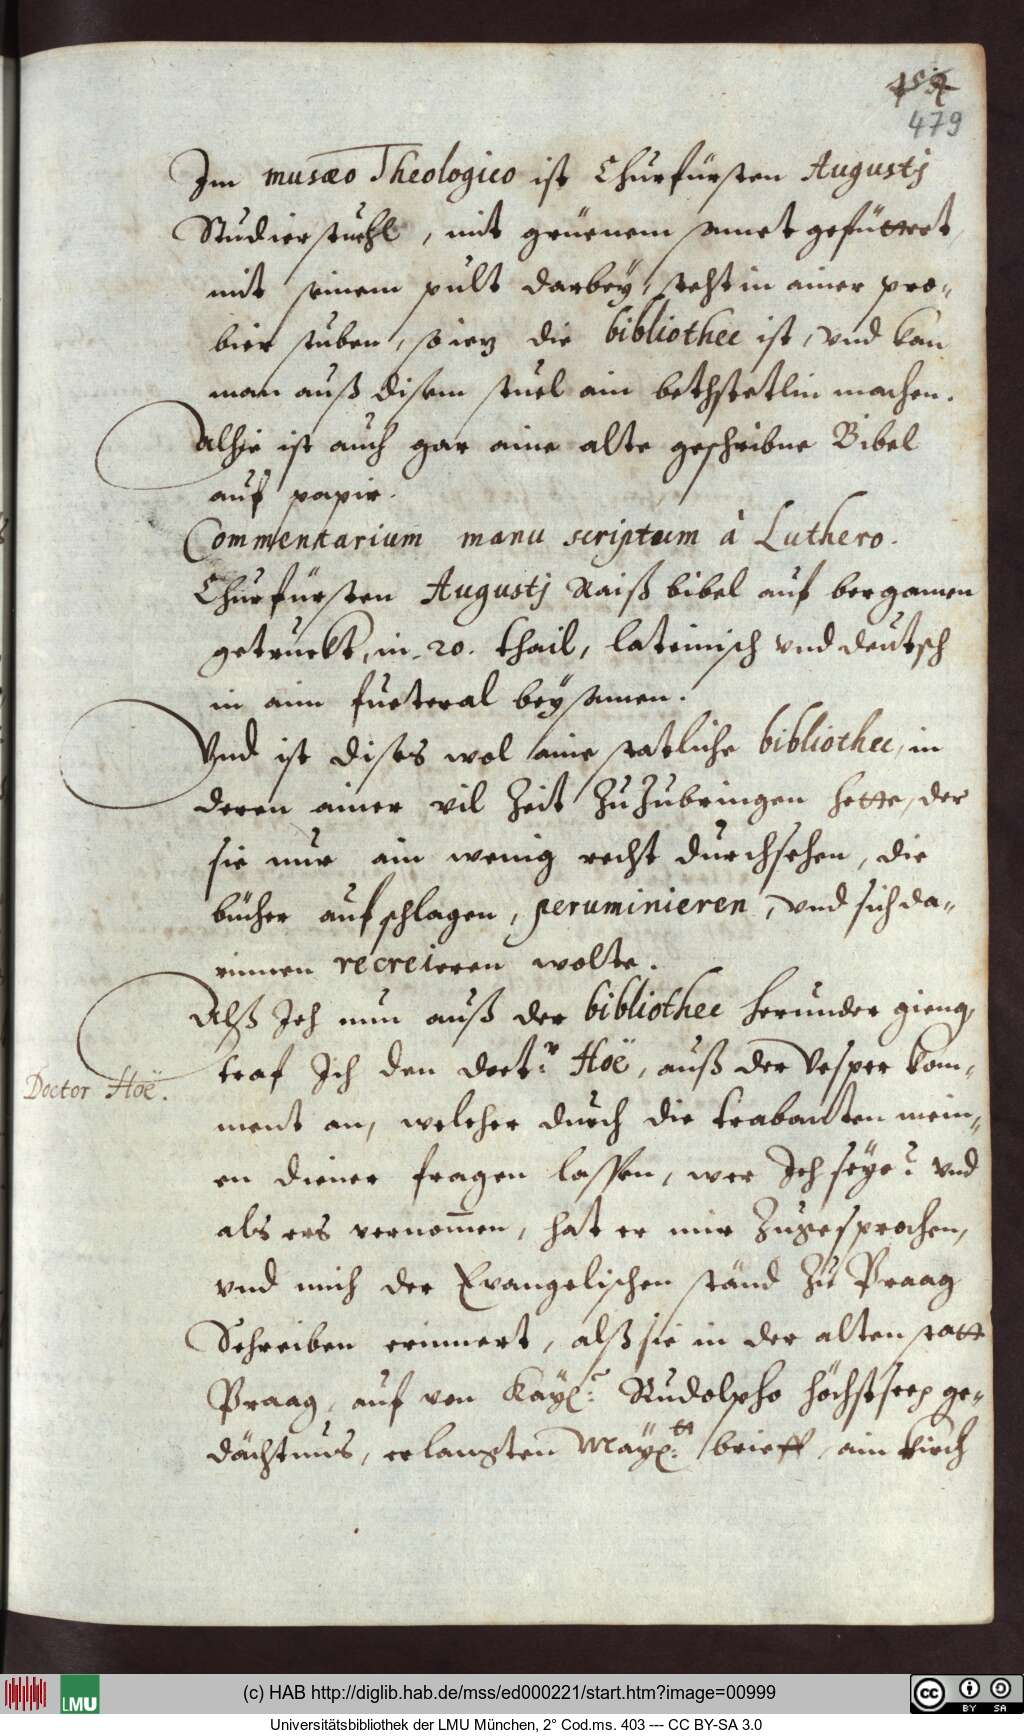 479
Im musæo Theologico ist Churfürsten Augustj
Studierstuehl, mit grüenem samet gefüttret,
mit seinem pult darbeÿ, steht in ainer pro-
bier stuben, so iez die bibliothec ist, vnd kan
man auß disem stuel ain bethstetlin machen.
Alhie ist auch gar aine alte geschribne Bibel
auf papir.
Commentarium manu scriptum à Luthero.
Churfürsten Augustj Raiß bibel auf bergamen
getruckt, in 20. thail, lateinisch vnd deütsch
in aim fueteral beÿsamen.
Vnd ist dises wol aine statliche bibliothec, in
deren ainer vil Zeit ZuZubringen hette, der
sie nur ain wenig recht durchsehen, die
bücher aufschlagen, peruminieren, vnd sich da-
rinnen recreieren wolte.
Alß Ich nun auß der bibliothec herunder gieng,
traf Ich den doct:r Hoë, auß der Vesper kom-
ment an, welcher durch die trabanten mein-
en diener fragen lassen, wer Ich seÿe? vnd
als ers vernom̅en, hat er mir Zugesprochen,
vnd mich der Evangelischen ständ Zu Praag
Schreiben erinnert, alß sie in der alten statt
Praag, auf von Kaÿ: Rudolpho höchstseel. ge-
dächtnus, erlangten Maÿ:tt brieff, ain kirch
Doctor Hoë.
(c) HAB http://diglib.hab.de/mss/ed000221/start.htm?image=00999
LMU
cc BY SA
Universitätsbibliothek der LMU München, 2° Cod.ms. 403 --- CC BY-SA 3.0